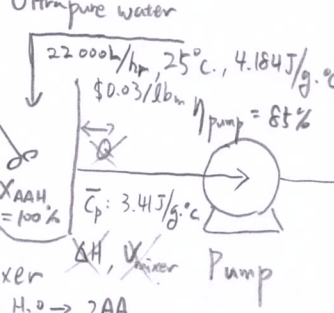 Ultrapure water
22000L/hr, 25°C., 4.184J/g.°C
$0.03/lbm
ηpump = 85%
Q
XAAH
= 100%
C̄p: 3.41J/g.°C
ΔH,
Pump
xer
H2O → 2AA